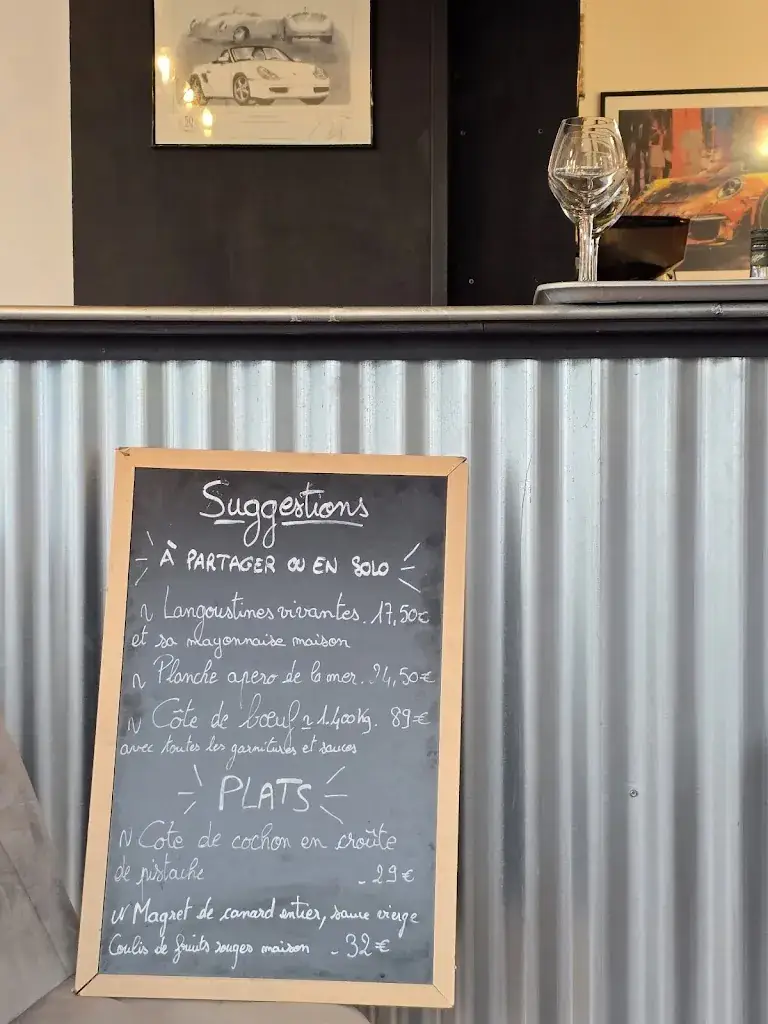 Suggestions
À PARTAGER OU EN SOLO
~ Langoustines vivantes. 17,50€
et sa mayonnaise maison
~ Planche apero de la mer..24,50€
~ Côte de bœuf ± 1.400kg. 89€
avec toutes les garnitures et sauces
PLATS
~ Cote de cochon en croûte
de pistache - 29€
~ Magret de canard entier, sauce vierge
Coulis de fruits rouges maison - 32€